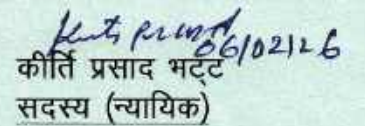 Kirti prasad
06/02/26
कीर्ति प्रसाद भट्ट
सदस्य (न्यायिक)